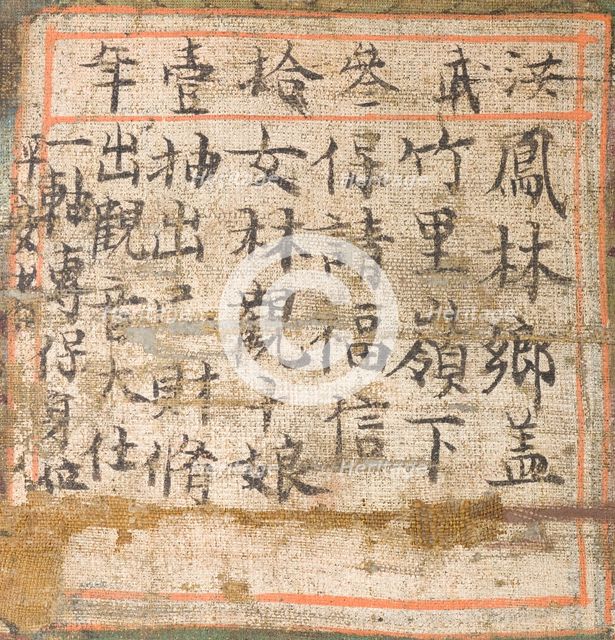 洪武叁拾壹年
鳳林鄉盖
竹里嶺下
保請信
女林娘
抽出己財脩
出觀音大仕
一軸專保身位
平安
Heritage
Heritage
Heritage
Heritage
Heritage
Heritage